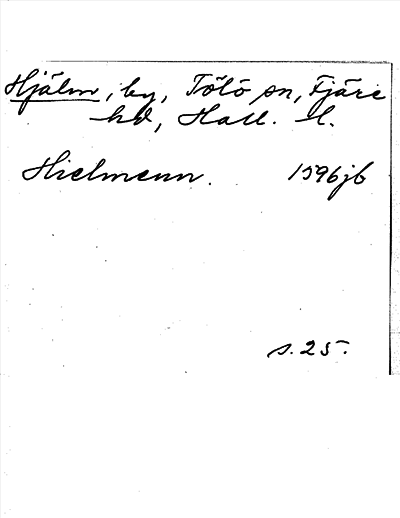 Hjälm, by, Tölö sn, Fjäre
hd, Hall. l.
Hielmenn. 1596jb
s. 25.